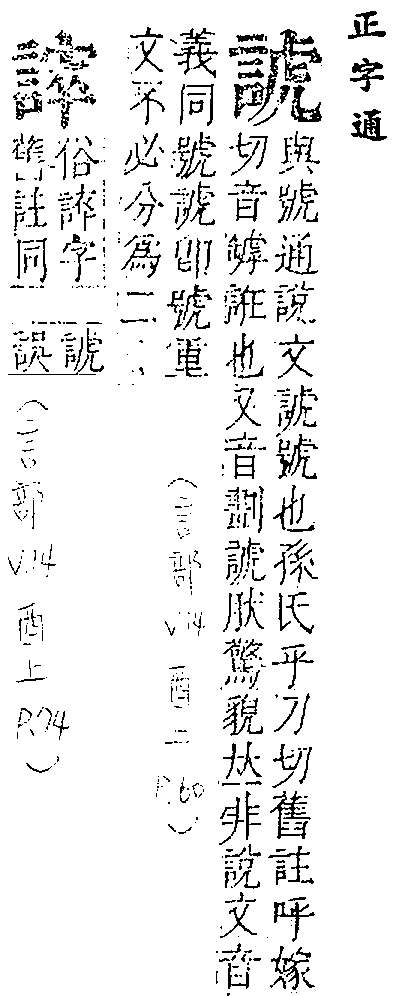 正字通
諕
與號通說文諕號也孫氏乎刀切舊註呼嫁
切音罅誑也又音劃諕肰驚貌𠀤非說文音
義同號諕卽號重
文不必分爲二
(言部 V.14 酉二 P.60)
俗誶字
舊註同
諕
誤
(言部 V.14 酉上 P.74)